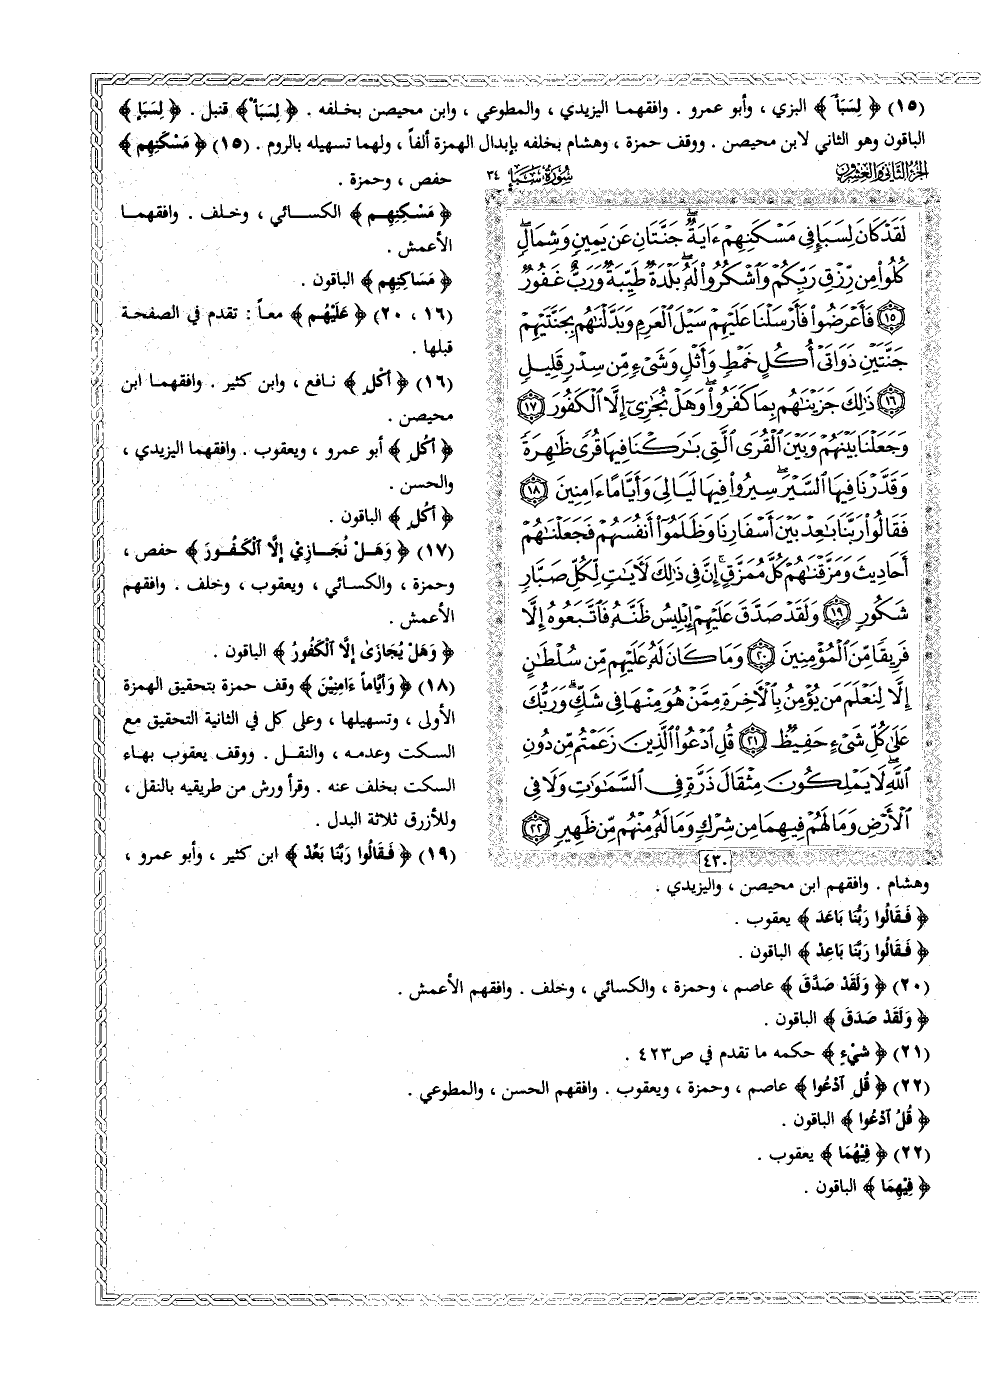 (١٥) ﴿ لِسَبَأَ ﴾ البزي ، وأبو عمرو . وافقهما اليزيدي ، والمطوعي ، وابن محيصن بخلفه . ﴿ لِسَبَأْ ﴾ قنبل . ﴿ لِسَبَإٍ ﴾
الباقون وهو الثاني لابن محيصن . ووقف حمزة ، وهشام بخلفه بإبدال الهمزة ألفاً ، ولهما تسهيله بالروم . (١٥) ﴿ مَسْكَنِهِم ﴾
حفص ، وحمزة .
﴿ مَسْكِنِهِم ﴾ الكسائي ، وخلف . وافقهما
الأعمش .
﴿ مَسَاكِنِهِم ﴾ الباقون .
(١٦ ، ٢٠) ﴿ عَلَيْهُم ﴾ معاً : تقدم في الصفحة
قبلها .
(١٦) ﴿ أُكْلٍ ﴾ نافع ، وابن كثير . وافقهما ابن
محيصن .
﴿ أُكُلِ ﴾ أبو عمرو ، ويعقوب . وافقهما اليزيدي ،
والحسن .
﴿ أُكُلٍ ﴾ الباقون .
(١٧) ﴿ وَهَلْ نُجَازِيْ إِلَّا ٱلْكَفُورَ ﴾ حفص ،
وحمزة ، والكسائي ، ويعقوب ، وخلف . وافقهم
الأعمش .
﴿ وَهَلْ يُجَازَىٰ إِلَّا ٱلْكَفُورُ ﴾ الباقون .
(١٨) ﴿ وَأَيَّاماً ءَامِنِيْنَ ﴾ وقف حمزة بتحقيق الهمزة
الأولى ، وتسهيلها ، وعلى كل في الثانية التحقيق مع
السكت وعدمه ، والنقل . ووقف يعقوب بهاء
السكت بخلف عنه . وقرأ ورش من طريقيه بالنقل ،
وللأزرق ثلاثة البدل .
(١٩) ﴿ فَقَالُوا رَبَّنَا بَعِّدْ ﴾ ابن كثير ، وأبو عمرو ،
الجزء الثاني والعشرون
سُورَةُ سَبَإٍ ٣٤
لَقَدْ كَانَ لِسَبَإٍ فِي مَسْكَنِهِمْ ءَايَةٌ ۖ جَنَّتَانِ عَن يَمِينٍ وَشِمَالٍ ۖ
كُلُوا۟ مِن رِّزْقِ رَبِّكُمْ وَٱشْكُرُوا۟ لَهُۥ ۚ بَلْدَةٌ طَيِّبَةٌ وَرَبٌّ غَفُورٌ
١٥ فَأَعْرَضُوا۟ فَأَرْسَلْنَا عَلَيْهِمْ سَيْلَ ٱلْعَرِمِ وَبَدَّلْنَٰهُم بِجَنَّتَيْهِمْ
جَنَّتَيْنِ ذَوَاتَىْ أُكُلٍ خَمْطٍ وَأَثْلٍ وَشَىْءٍ مِّن سِدْرٍ قَلِيلٍ
١٦ ذَٰلِكَ جَزَيْنَٰهُم بِمَا كَفَرُوا۟ ۖ وَهَلْ نُجَٰزِىٓ إِلَّا ٱلْكَفُورَ ١٧
وَجَعَلْنَا بَيْنَهُمْ وَبَيْنَ ٱلْقُرَى ٱلَّتِى بَٰرَكْنَا فِيهَا قُرًى ظَٰهِرَةً
وَقَدَّرْنَا فِيهَا ٱلسَّيْرَ ۖ سِيرُوا۟ فِيهَا لَيَالِىَ وَأَيَّامًا ءَامِنِينَ ١٨
فَقَالُوا۟ رَبَّنَا بَٰعِدْ بَيْنَ أَسْفَارِنَا وَظَلَمُوٓا۟ أَنفُسَهُمْ فَجَعَلْنَٰهُمْ
أَحَادِيثَ وَمَزَّقْنَٰهُمْ كُلَّ مُمَزَّقٍ ۚ إِنَّ فِى ذَٰلِكَ لَءَايَٰتٍ لِّكُلِّ صَبَّارٍ
شَكُورٍ ١٩ وَلَقَدْ صَدَّقَ عَلَيْهِمْ إِبْلِيسُ ظَنَّهُۥ فَٱتَّبَعُوهُ إِلَّا
فَرِيقًا مِّنَ ٱلْمُؤْمِنِينَ ٢٠ وَمَا كَانَ لَهُۥ عَلَيْهِم مِّن سُلْطَٰنٍ
إِلَّا لِنَعْلَمَ مَن يُؤْمِنُ بِٱلْءَاخِرَةِ مِمَّنْ هُوَ مِنْهَا فِى شَكٍّ ۗ وَرَبُّكَ
عَلَىٰ كُلِّ شَىْءٍ حَفِيظٌ ٢١ قُلِ ٱدْعُوا۟ ٱلَّذِينَ زَعَمْتُم مِّن دُونِ
ٱللَّهِ ۖ لَا يَمْلِكُونَ مِثْقَالَ ذَرَّةٍ فِى ٱلسَّمَٰوَٰتِ وَلَا فِى
ٱلْأَرْضِ وَمَا لَهُمْ فِيهِمَا مِن شِرْكٍ وَمَا لَهُۥ مِنْهُم مِّن ظَهِيرٍ ٢٢
٤٣٠
وهشام . وافقهم ابن محيصن ، واليزيدي .
﴿ فَقَالُوا رَبُّنَا بَاعَدَ ﴾ يعقوب .
﴿ فَقَالُوا رَبَّنَا بَاعِدْ ﴾ الباقون .
(٢٠) ﴿ وَلَقَدْ صَدَّقَ ﴾ عاصم ، وحمزة ، والكسائي ، وخلف . وافقهم الأعمش .
﴿ وَلَقَدْ صَدَقَ ﴾ الباقون .
(٢١) ﴿ شَيْءٍ ﴾ حكمه ما تقدم في ص٤٢٣ .
(٢٢) ﴿ قُلِ ٱدْعُوا ﴾ عاصم ، وحمزة ، ويعقوب . وافقهم الحسن ، والمطوعي .
﴿ قُلُ ٱدْعُوا ﴾ الباقون .
(٢٢) ﴿ فِيْهُمَا ﴾ يعقوب .
﴿ فِيْهِمَا ﴾ الباقون .